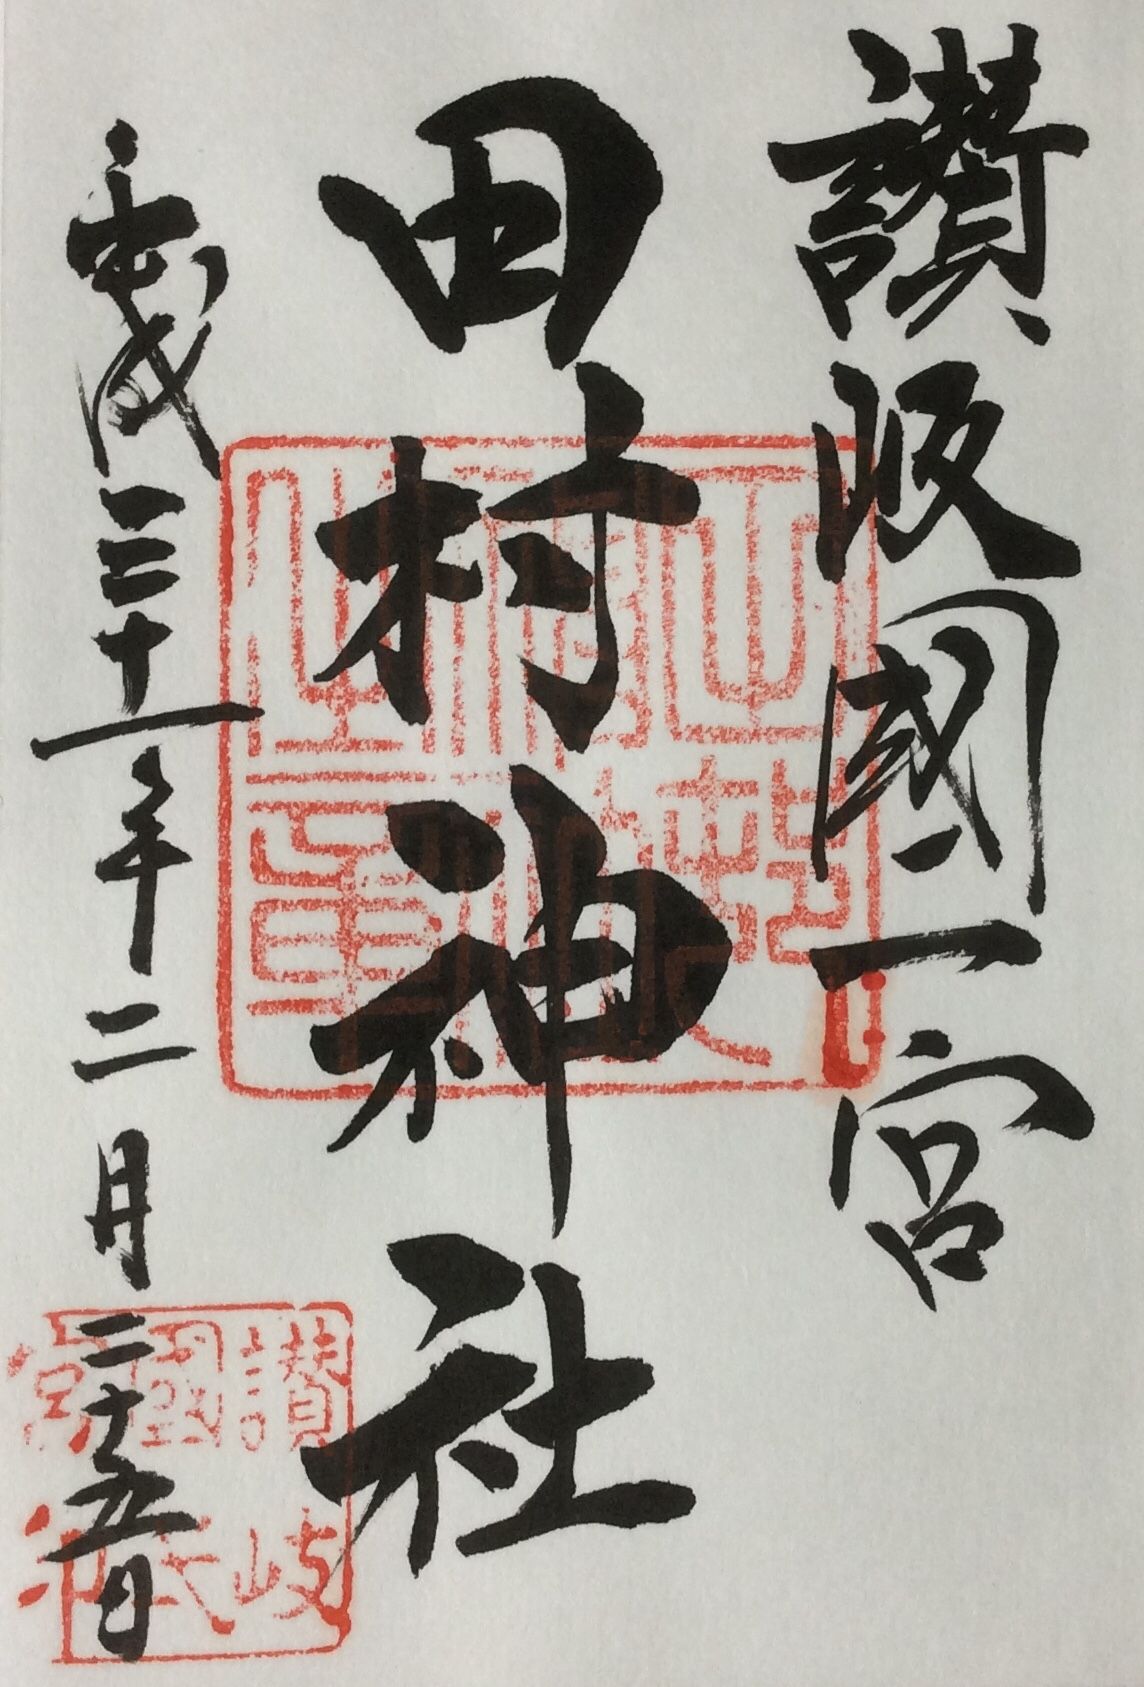 讃岐國一宮
田村神社
平成三十一年二月二十五日
讃岐
國